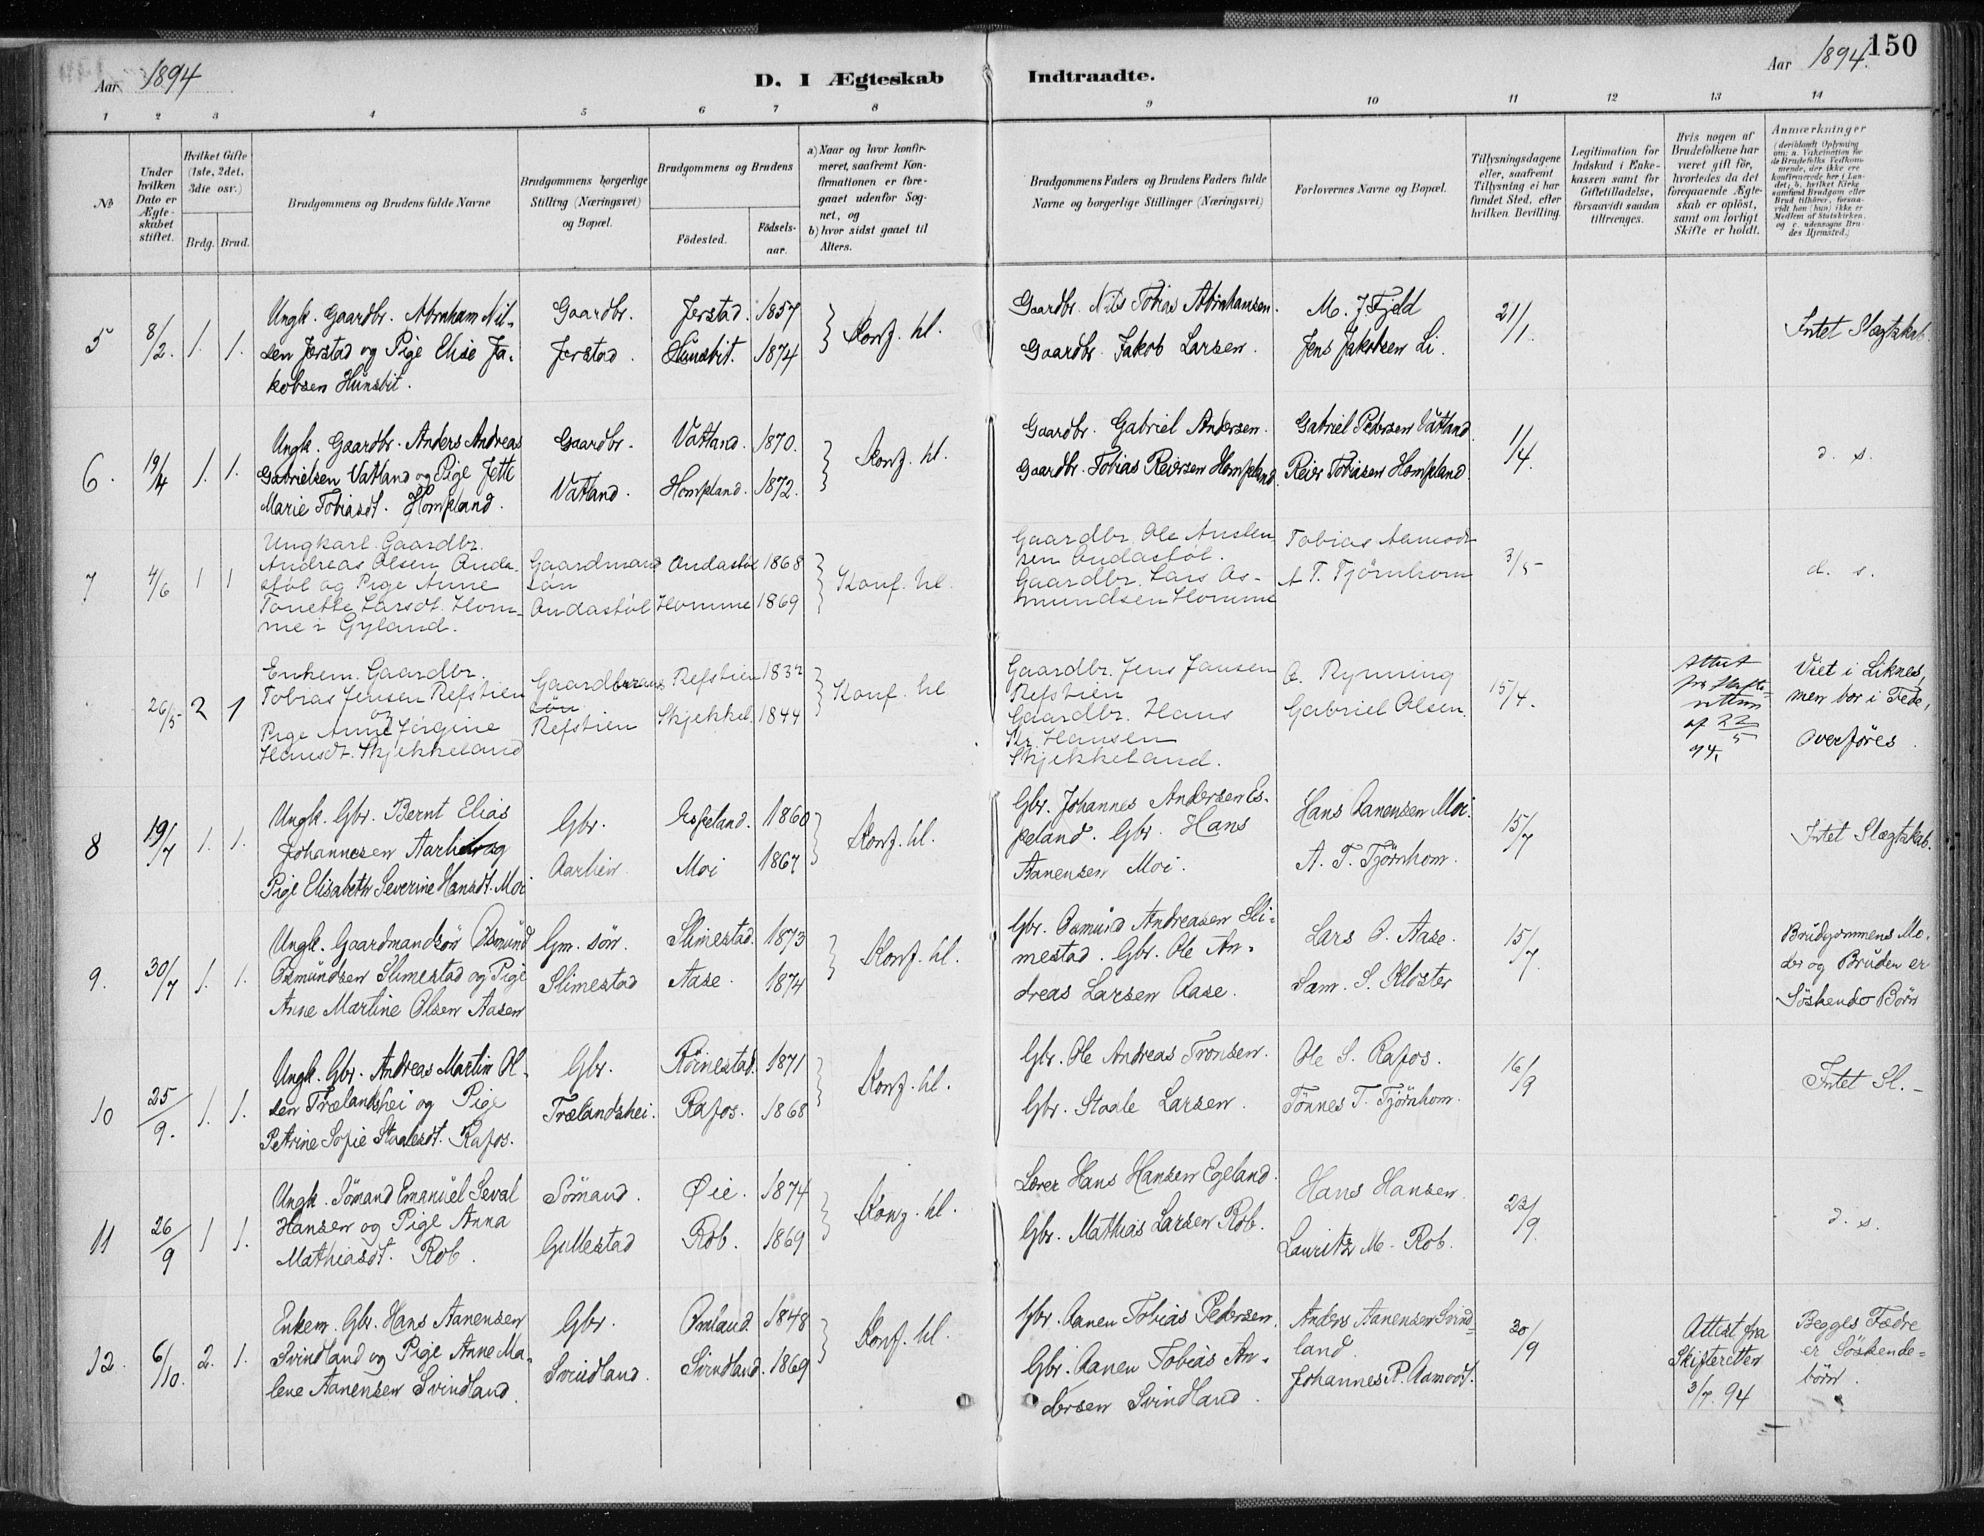 Aar 1894
D. I Ægteskab Indtraadte.
Aar 1894. 150
1 2 3 4 5 6 7 8 9 10 11 12 13 14
No
Under hvilken Dato er Ægteskabet stiftet.
Hvilket Gifte (1ste, 2det, 3die osv.)
Brdg. Brud.
Brudgommens og Brudens fulde Navne
Brudgommens borgerlige Stilling (Næringsvei) og Bopæl.
Brudgommens og Brudens
Födested. Födsels-aar.
a) Naar og hvor konfirmeret, saafremt Konfirmationen er foregaaet udenfor Sognet, og
b) hvor sidst gaaet til Alters.
Brudgommens Faders og Brudens Faders fulde Navne og borgerlige Stillinger (Næringsvei)
Forlovernes Navne og Bopæl.
Tillysningsdagene eller, saafremt Tillysning ei har fundet Sted, efter hvilken Bevilling.
Legitimation for Indskud i Enkekassen samt for Giftetilladelse, forsaavidt saadan tiltrænges.
Hvis nogen af Brudefolkene har været gift för, hvorledes da det foregaaende Ægteskab er oplöst, samt om lovligt Skifte er holdt.
Anmærkninger (deriblandt Oplysning om: a. Vakcination for de Brudefolks Vedkommende, der ikke ere konfirmerede her i Landet; b. hvilket Kirkesamfund Brudgom eller Brud tilhörer, forsaavidt han (hun) ikke er Medlem af Statskirken, og c. udensogns Brudes Hjemsted.)
5 8/2. 1. 1.
Ungk. Gaardbr. Abraham Nil-
sen Jerstad og Pige Elise Ja-
kobsen Hunsbit.
Gaardbr.
Jerstad.
Jerstad. 1857
Hunsbit. 1874
Konf. hl.
Gaardbr. Nils Tobias Abrahamsen.
Gaardbr. Jakob Larsen.
M. J. Fjeld
Jens Jakobsen Li.
21/1.
Intet Slægtskab.
6. 19/4 1. 1.
Ungk. Gaardbr. Anders Andreas
Gabrielsen Vatland og Pige Jette
Marie Tobiasdt. Hompland.
Gaardbr.
Vatland.
Vatland. 1870.
Hompland. 1872.
Konf. hl.
Gaardbr. Gabriel Andersen.
Gaardbr. Tobias Reiersen Hompland.
Gabriel Pedersen Vatland
Reier Tobiasen Hompland.
1/4.
d. s.
7 4/6 1 1
Ungkarl Gaardbr.
Andreas Olsen Anda-
støl og Pige Anne
Tonette Larsdt. Hom-
me i Gyland.
Gaardmands
søn
Andastøl
Andastøl 1868
Homme 1869
Konf. hl.
Gaardbr. Ole Auslen-
sen Andastøl.
Gaardbr. Lars As-
mundsen Homme
Tobias Aamodt
A T. Tjörnhom
3/5
d. s.
26/5 2 1
Enkem. Gaardbr.
Tobias Jensen Refstien
og
Pige Anne Jörgine
Hansdt. Skjekkeland
Gaardbr
Refstien
Refstien 1832
Skjekkel. 1844
Konf. hl
Gaardbr. Jens Jansen
Refstien
Gaardbr. Hans
Hansen
Skjekkeland.
O. Rynning
Gabriel Olsen.
15/4.
Attest
fra Skifte-
retten
af 22/5
94.
Viet i Liknes,
men bor i Fede,
Overføres.
8 19/7 1. 1.
Ungk. Gbr. Bernt Elias
Johannesen Aarli og
Pige Elisabeth Severine Hansdt. Moi
Gbr.
Aarlien.
Espeland. 1860
Moi 1867
Konf. hl.
Gbr. Johannes Andersen Es-
peland. Gbr. Hans
Aanensen Moi.
Hans Aanensen Moi.
A. T. Tjörnhom.
15/7
Intet Slægtskab.
9. 30/7 1. 1.
Ungk. Gaardmandsön Osmund
Osmundsen Slimestad og Pige
Anne Martine Olsen Aasen
Gm. sön.
Slimestad
Slimestad. 1873
Aase. 1874
Konf. hl.
Gbr. Osmund Andreasen Sli-
mestad. Gbr. Ole An-
dreas Larsen Aase.
Lars O. Aase.
Sam. S. Kloster
15/7.
Brudgommens Mo-
der og Bruden er
Söskende Börn
10 25/9. 1. 1.
Ungk. Gbr. Andreas Martin Ol-
sen Trælandshei og Pige
Petrine Sofie Staalesdt. Rafos.
Gbr.
Trælandshei.
Röinestad. 1871
Rafos. 1868
Konf. hl.
Gbr. Ole Andreas Tronsen.
Gbr. Staale Larsen.
Ole S. Rafos.
Tönnes T. Tjörnhom.
16/9
Intet Sl.-
11 26/9 1 1.
Ungk. Sömand Emanuel Seval
Hansen og Pige Anna
Mathiasdt. Rob.
Sömand.
Gullestad
Øie. 1874
Rob. 1869
Konf. hl.
Lærer Hans Hansen Egeland.
Gbr. Mathias Larsen Rob.
Hans Hansen.
Lauritz M. Rob.
23/9.
d. s.
12. 6/10. 2. 1.
Enkem. Gbr. Hans Aanensen
Svindland og Pige Anne Ma-
lene Aanensen Svindland.
Gbr.
Svindland.
Omland. 1848
Svindland. 1869
Konf. hl.
Gbr. Aanen Tobias Pedersen.
Gbr. Aanen Tobias An-
dersen Svindland.
Anders Aanensen Svind-
land.
Johannes P. Aamodt.
30/9
Attest fra
Skifteretten
3/7. 94
Begges Fædre
er Söskende-
börn.